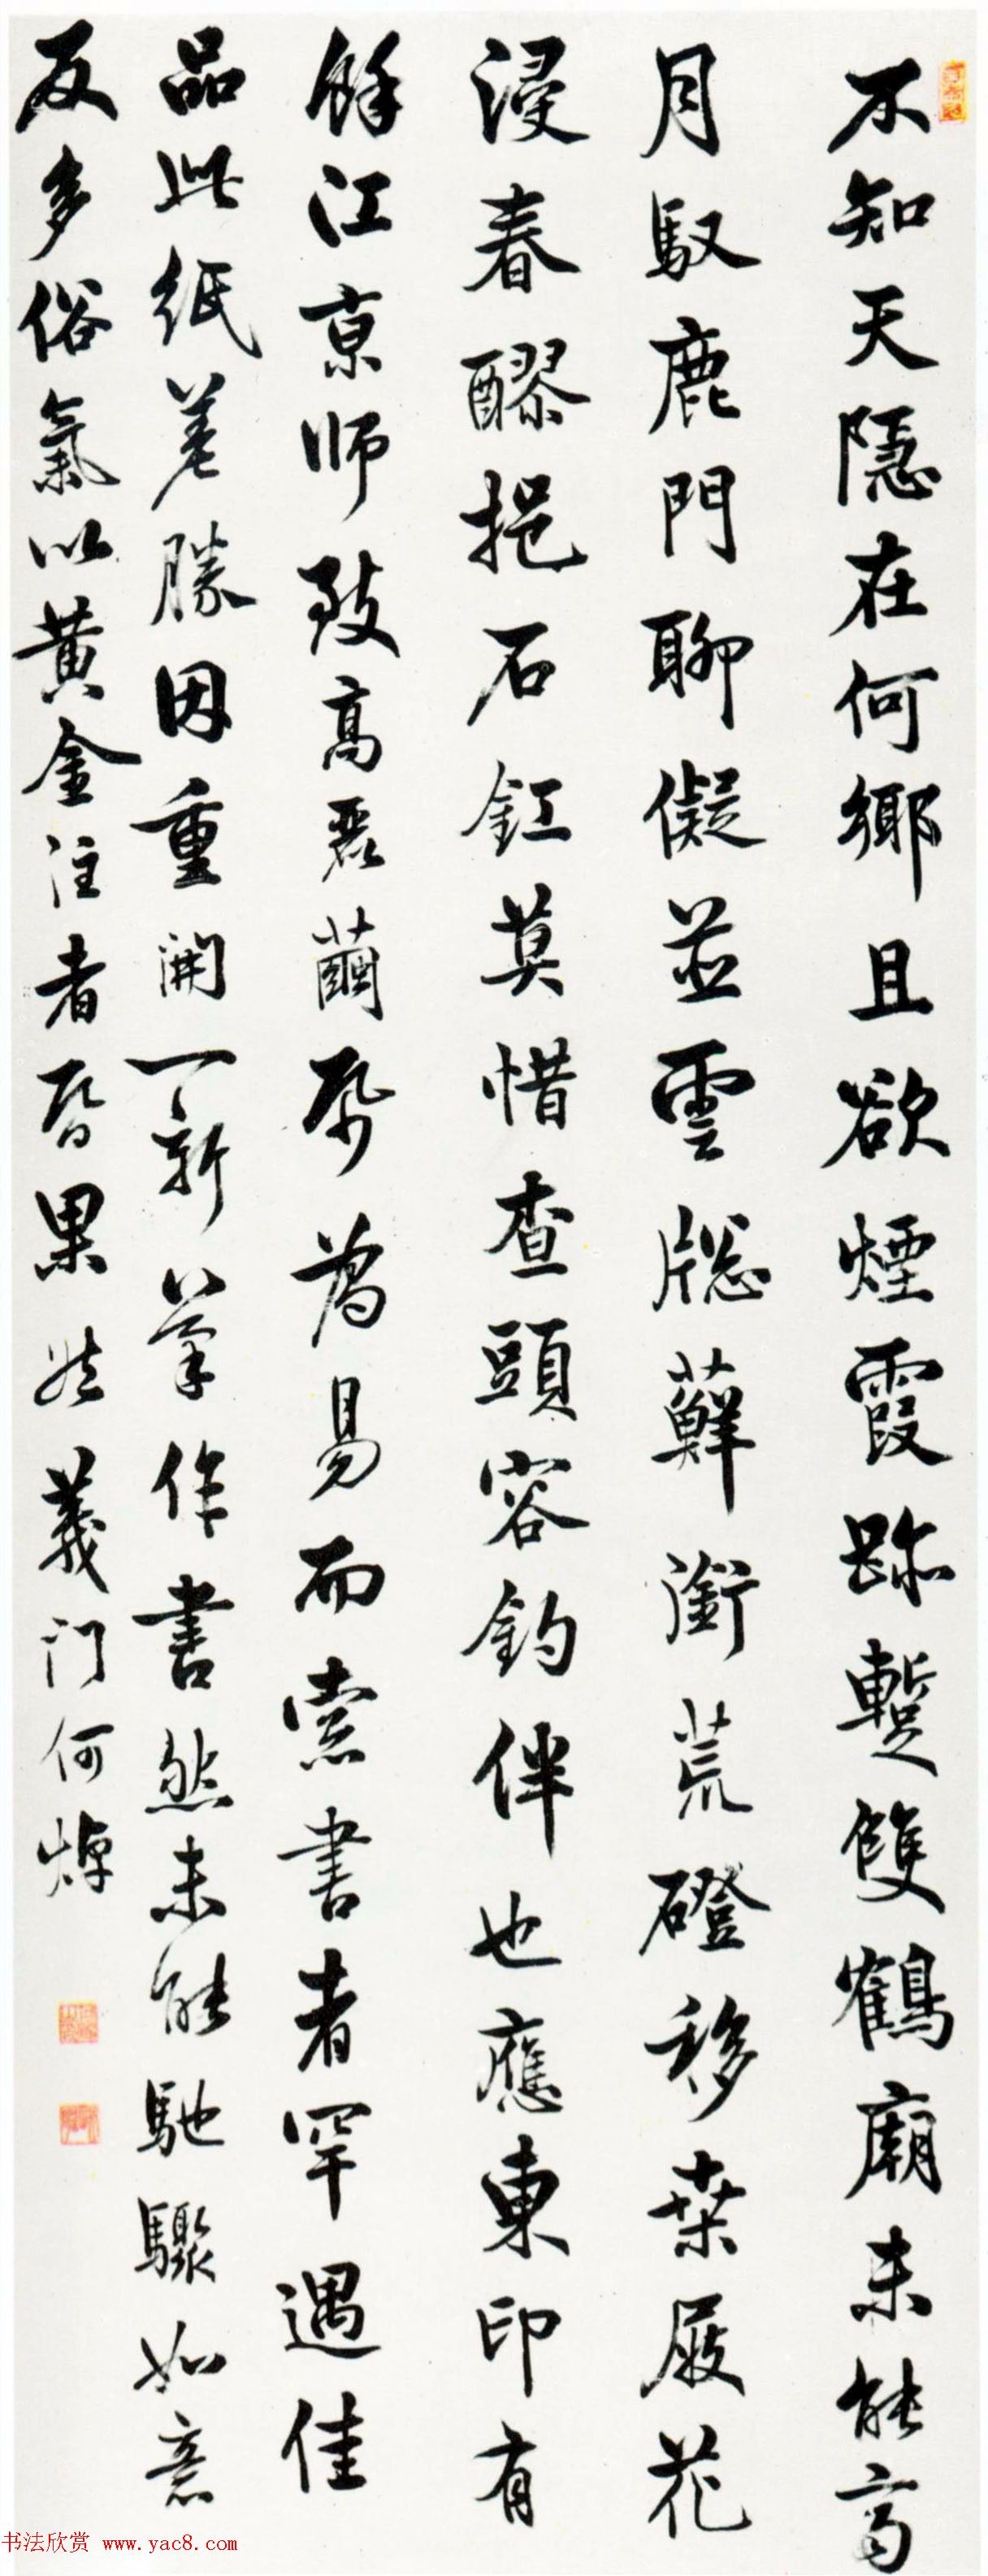 不知天隱在何鄉且欲煙霞跡蹔雙鶴廟未能齊
月馭鹿門聊儗並雲牕蘚銜荒磴移桒屐花
浸春醪挹石缸莫惜查頭容釣伴也應東印有
餘江京師致高麗繭帋為易而索書者罕遇佳
品此紙差勝因重開一新筆作書然未能馳驟如意
反多俗氣以黃金注者昏果然義门何焯
书法欣赏 www.yac8.com